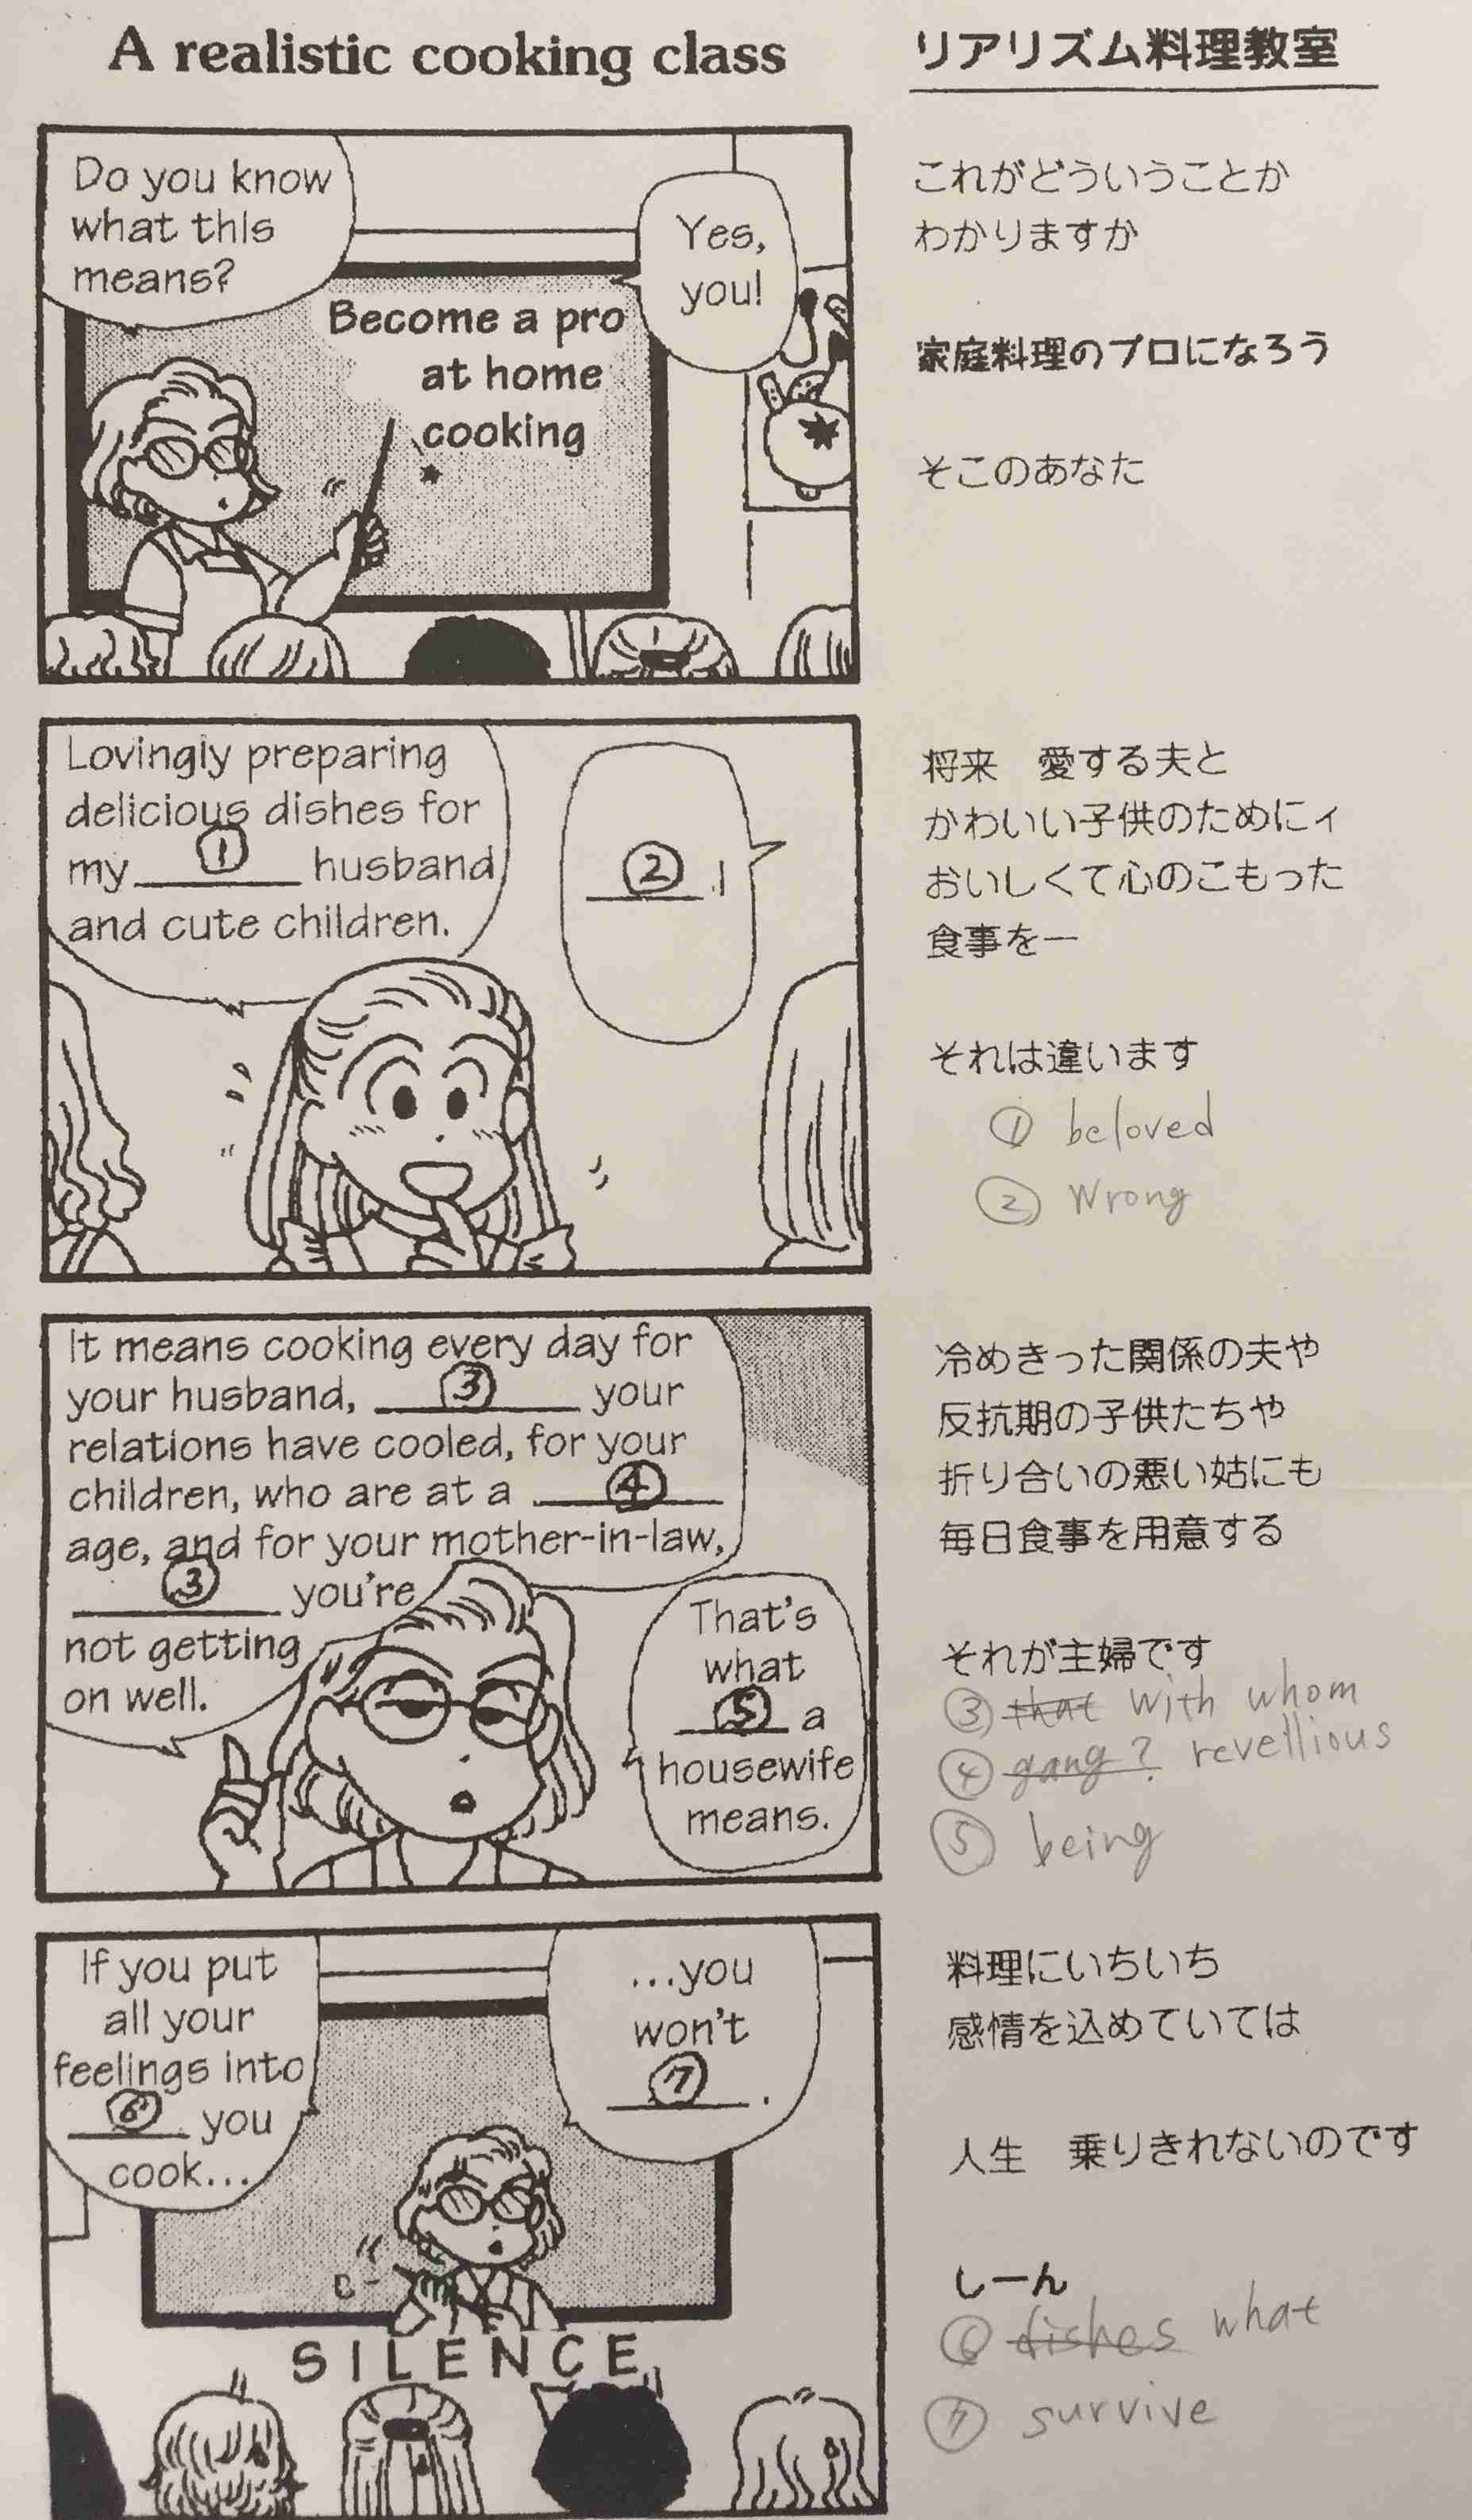 A realistic cooking class
リアリズム料理教室
Do you know
what this
means?
Yes,
you!
Become a pro
at home
cooking
これがどういうことか
わかりますか
家庭料理のプロになろう
そこのあなた
Lovingly preparing
delicious dishes for
my ① husband
and cute children.
② !
将来 愛する夫と
かわいい子供のためにィ
おいしくて心のこもった
食事をー
それは違います
① beloved
② Wrong
It means cooking every day for
your husband, ③ your
relations have cooled, for your
children, who are at a ④
age, and for your mother-in-law,
③ you're
not getting
on well.
That's
what
⑤ a
housewife
means.
冷めきった関係の夫や
反抗期の子供たちや
折り合いの悪い姑にも
毎日食事を用意する
それが主婦です
③ that with whom
④ gang? revellious
⑤ being
If you put
all your
feelings into
⑥ you
cook...
...you
won't
⑦ .
SILENCE
料理にいちいち
感情を込めていては
人生 乗りきれないのです
しーん
⑥ dishes what
⑦ survive